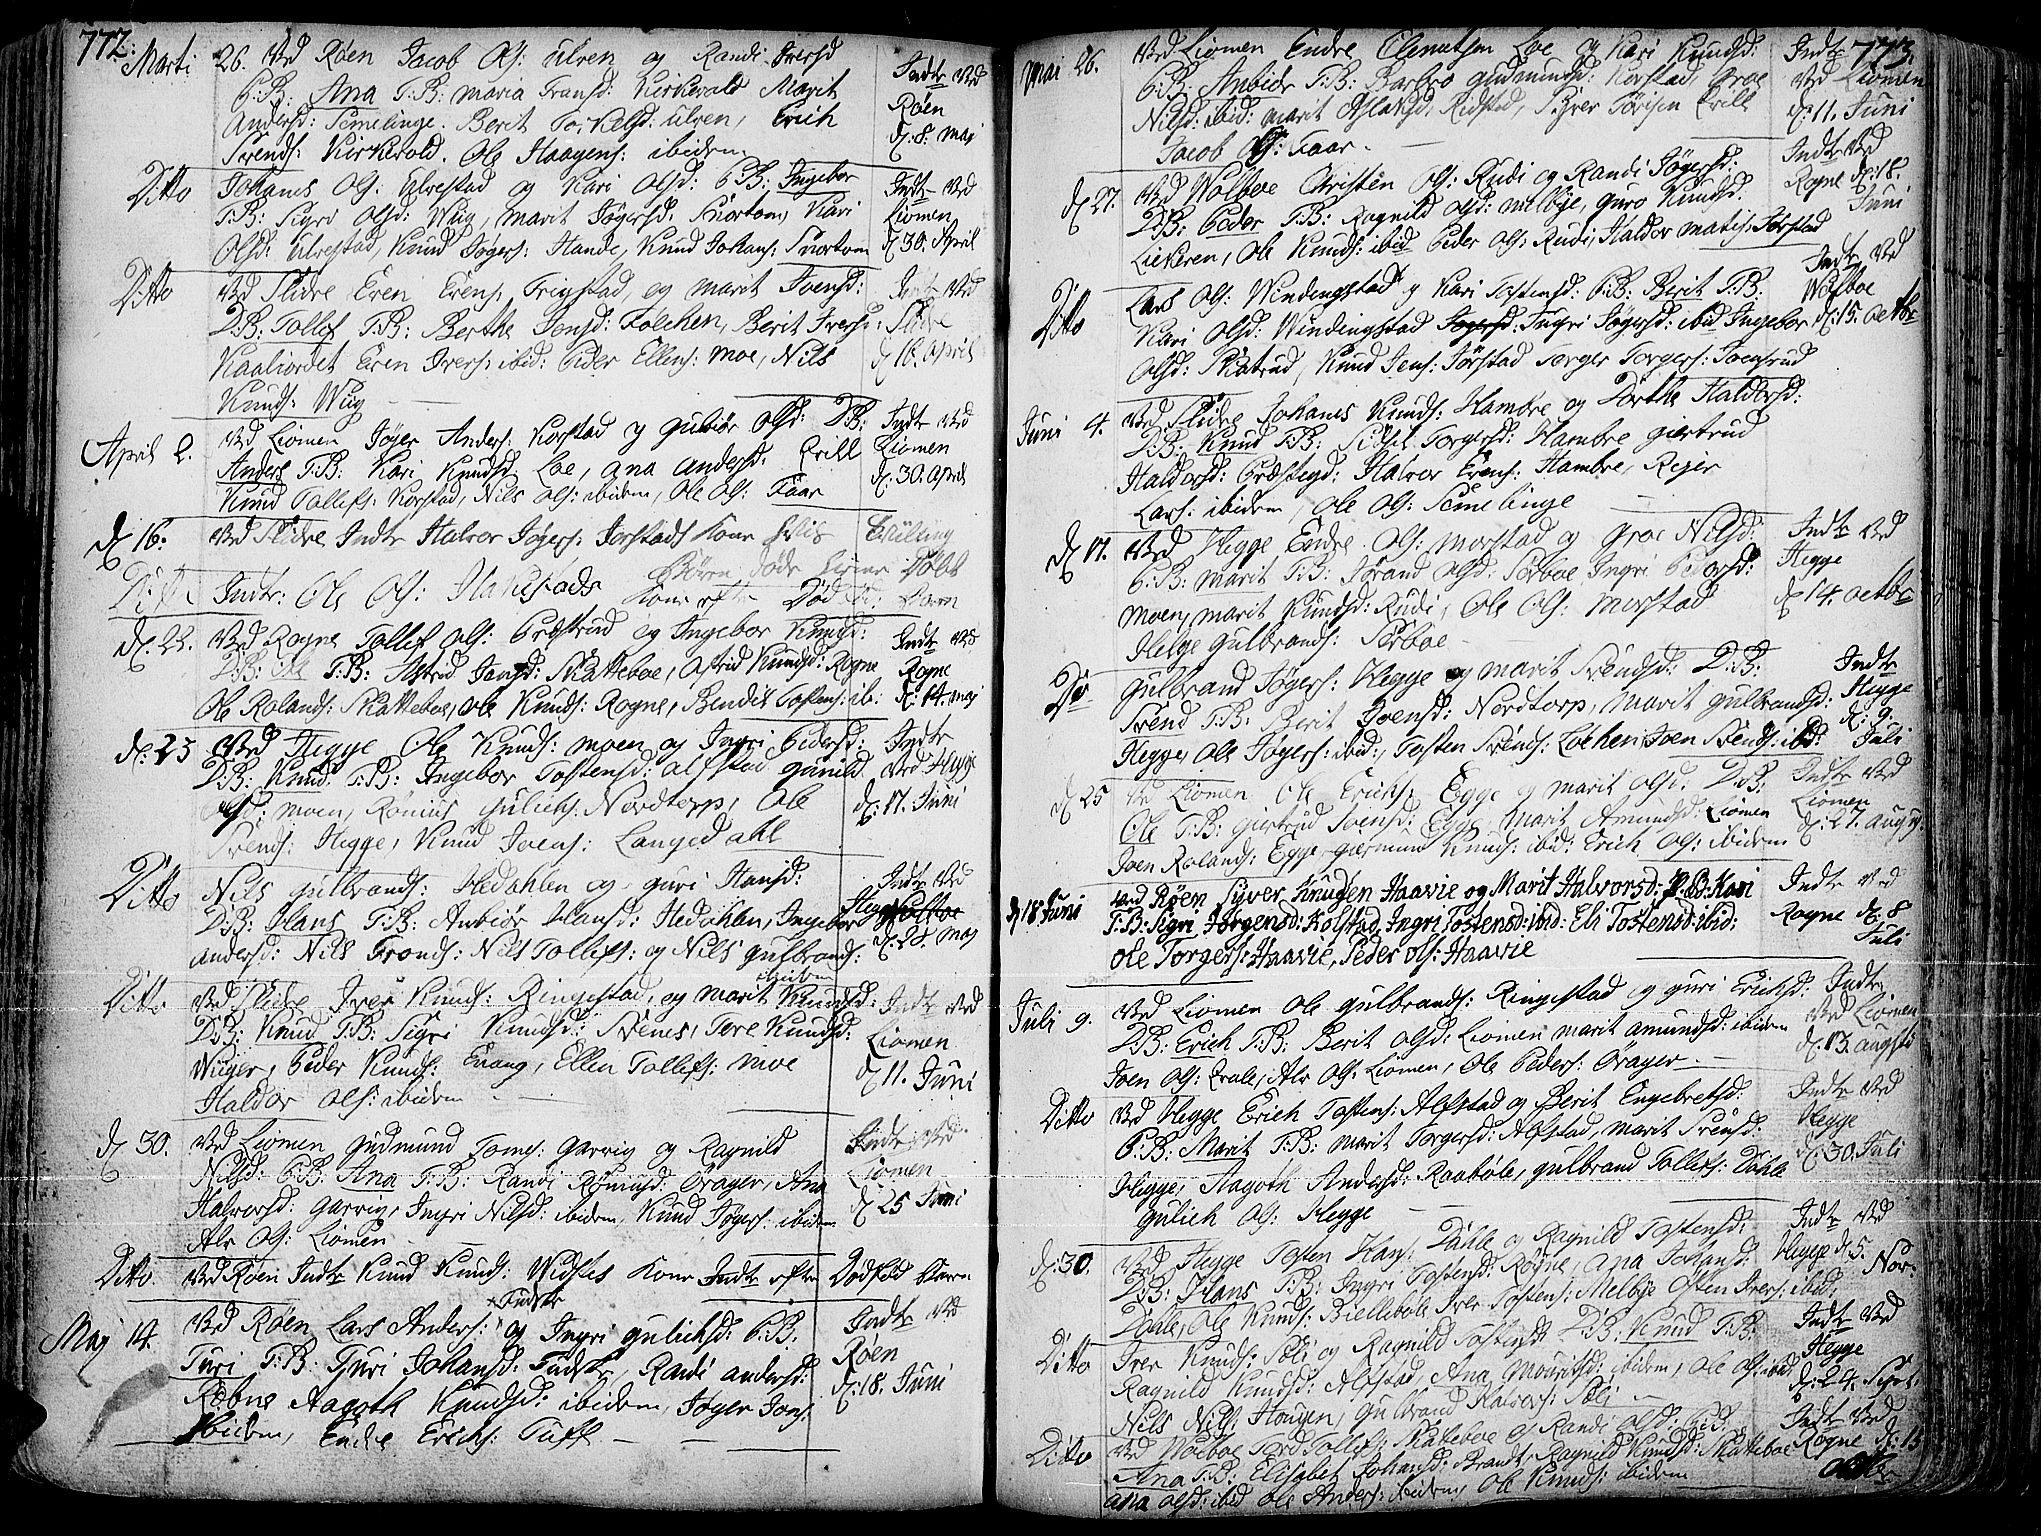 772.
Marti 26. Ved Røen Jacob Ols: Ulven og Randi Iversd
P:B: Ana T:B: Maria Fransd: Kirkevold Marit
Andersd: Semelinge. Berit Torkelsd: Ulven, Erich
Svends: Kirkevold. Ole Haagens: ibidem
Indtr Ved
Røen
d: 8: Maj
Ditto Johans Ols: Ulvestad og Kari Olsd: P:B: Ingebor
T:B: Sigri Olsd: Wiig, Marit Jøgersd: Snortom, Kari
Olsd: Ulvestad, Knud Jøgers: Hande, Knud Johans: Snortom
Indtr Ved
Liomen
d: 30. April
Ditto Ved Slidre Even Evens: Trigstad, og Marit Ivensd:
D:B: Tollef T:B: Berthe Jonsd: Folchen, Berit Ivers:
Kaaliordet Even Ivers: ibid: Peder Ellens: Moe, Nils
Knuds: Wiig
Indtr Ved
Slidre
d: 16. April
April 2. Ved Liomen Jøger Anders: Korstad og Gubiør Olsd: D:B:
Anders T:B: Kari Knudsd: Loe, Ana Andersd: Qvill
Knud Tollefs: Korstad, Nils Ols: ibidem, Ole Ols: Faar
Indtr Ved
Liomen
d: 30. April
d: 16. Ved Slidre Indtr Halvor Jøgers: Jorstads Kone
Ditto Indtr: Ole Ols: Kone efter Død
d: 23. Ved Rogne Tollef Ols: Præstrud og Ingebor Knudsd:
D:B: Ole T:B: Astrid Jansd: Skatteboe, Astrid Knudsd: Rogne
Ole Rolands: Skatteboe, Ole Knuds: Rogne, Bendit Tostens: ib:
Indtr Ved
Rogne
d: 14. Maj
d: 23 Ved Hegge Ole Knuds: Moen og Ingri Pedersd:
D:B: Knud T:B: Ingebor Tostensd: Alfstad Gunild
Olsd: Moen, Rømius Gulichs: Nordtorp, Ole
Svends: Hegge, Knud Ivens: Langedahl
Indtr
Ved Hegge
d: 17. Juni
Ditto Nils Gulbrands: Hedahlen og Guri Hansd:
D:B: Hans T:B: Anbiør Hansd: Hedahlen, Ingebor
Andersd: Nils Tronds: Nils Tollefs: og Nils Gulbrands:
ibidem
Indtr Ved
Hegge
d: 28. Maj
Ditto Ved Slidre Iver Knuds: Ringestad, og Marit Knudsd:
D:B: Knud T:B: Sigri Knudsd: Svenes, Tore Knudsd:
Wiiger, Peder Knuds: Qvang, Ellen Tollefs: Moe
Haldor Ols: ibidem
Indtr Ved
Liomen
d: 11. Juni
d: 30. Ved Liomen Gudmund Toms: Garvig og Ragnild
Nilsd: P:B: Ana T:B: Randi Rømusd: Ørager, Ana
Halvorsd: Garvig, Ingri Nilsd: ibidem, Knud Jøgers: ibidem
Alv Ols: Liomen
Indtr Ved
Liomen
d: 25 Juni
Ditto. Ved Røen Indtr Knud Knuds: Kone Indtr efter Dødfød Barn
Maj 14. Ved Røen Lars Anders: og Ingri Gulichsd: P:B:
Turi T:B: Guri Johansd: Randi Andersd:
Robne Aagoth Knudsd: ibidem, Jøger Jons:
ibidem, Endre Erichs: Tuff
Indtr Ved
Røen
d: 18. Juni
773.
Mai 26. Ved Liomen Endre Clemetsen Loe og Kari Knudsd:
P:B: Anbiør T:B: Barbro Gudmunsd: Korstad, Groe
Nilsd: ibid: Marit Aslaksd: Ridstad, Syver Tørisen Qvill
Jacob Ols: Faar.
Indtr
Ved Liomen
d: 11. Juni
d: 27. Ved Wolboe Christen Ols: Rudi og Randi Jøgersd:
D:B: Peder T:B: Ragnild Olsd: Melbye, Guro Knudsd:
Liekeren, Ole Knuds: ibid Peder Ols: Rudi, Haldor Matis: Jørstad
Indtr Ved
Rogne d: 18.
Juni
Ditto Lars Ols: Windingstad og Kari Tostensd: P:B: Berit T:B:
Kari Olsd: Windingstad Ingri Jøgersd: ibid Ingebor
Olsd: Skatrud, Knud Jens: Jørstad Torger Torgers: Joensrud
Indtr Ved
Wolboe
d: 15. Octbr
Juni 4. Ved Slidre Johanes Knuds: Hambre og Dorthe Haldorsd:
D:B: Knud T:B: Sidsel Torgersd: Hambre Giertrud
Haldorsd: Præstegd: Halvor Evens: Hambre, Reier
Lars: ibidem, Ole Ols: Semelinge
d: 17. Ved Hegge Endre Ols: Morstad og Groe Nilsd:
P:B: Marit T:B: Jørand Olsd: Sørboe Ingri Pedersd:
Moen, Marit Knudsd: Rudi, Ole Ols: Morstad
Helge Gulbrands: Sørboe
Indtr Ved
Hegge
d: 14. Octbr
Do Gulbrand Jøgers: Hegge og Marit Svendsd: D:B:
Svend T:B: Berit Joensd: Nordtorp, Marit Gulbrandsd:
Hegge, Ole Jøgers: ibid:, Tosten Svends: Loeken, Joen Svends: ibd:
Indtr
Hegge
d: 9.
Juli
d: 25 Ved Liomen Ole Erichs: Egge og Marit Olsd: D:B:
Ole T:B: Giertrud Svensd: Egge, Marit Amundsd: Liomen
Joen Rolands: Egge, Giermun Knuds: ibid: Erich Ols: ibidem
Indtr Ved
Liomen
d: 27. Aug:
d: 18 Juni Ved Røen Syver Knudsen Haavie og Marit Halvorsd: P.B: Kari
T:B: Sigri Jørgensd: Kolstad, Ingri Tostensd: ibid: Eli Tostensd: ibid:
Ole Torgers: Haavie, Peder Ols: Haavie
Indtr Ved
Rogne d: 8
Juli
Juli 9. Ved Liomen Ole Gulbrands: Ringestad og Guri Erichsd:
D:B: Erich T:B: Berit Olsd: Liomen Marit Amundsd: ibidem
Joen Ols: Qvale, Alv Ols: Liomen, Ole Peders: Ørager.
Indtr
Ved Liomen
d: 13. Augsti
Ditto Ved Hegge Erich Tostens: Alfstad og Berit Engebretsd:
P:B: Marit T:B: Marit Torgersd: Alfstad, Marit Svensd:
Hegge, Aagoth Andersd: Raabøle, Gulbrand Tollefs: Dahle
Gulich Ols: Hegge
Indtr Ved
Hegge
d: 30. Juli
d: 30. Ved Hegge Tosten Hans: Dahle og Ragnild Tostensd:
D:B: Hans T:B: Ingri Tostensd: Rogne, Ana Johansd:
Dahle, Ole Knuds: Biellebøle Iver Tostens: Melbye Osten Ivers: ibid:
Indtr Ved
Hegge d: 5.
Nov:
Ditto Iver Knuds: Soli og Ragnild Tostensd: D:B: Knud T:B:
Ragnild Knudsd: Alfstad, Ana Mouritsd: ibidem, Ole Ols: ibid
Nils Nils: Hougen, Gulbrand Halvors: Soli
Indtr Ved
Hegge
d: 24. Sept.
Ditto Ved Wolboe Tord Tollefs: Skatteboe og Randi Olsd: P:B:
Ana T:B: Elisabet Johansd: Strandt, Ragnild Knudsd: Skatteboe
Ana Olsd: ibid Ole Anders: ibidem, Ole Knuds: ibidem
Indtr Ved
Rogne d: 15
Octbr